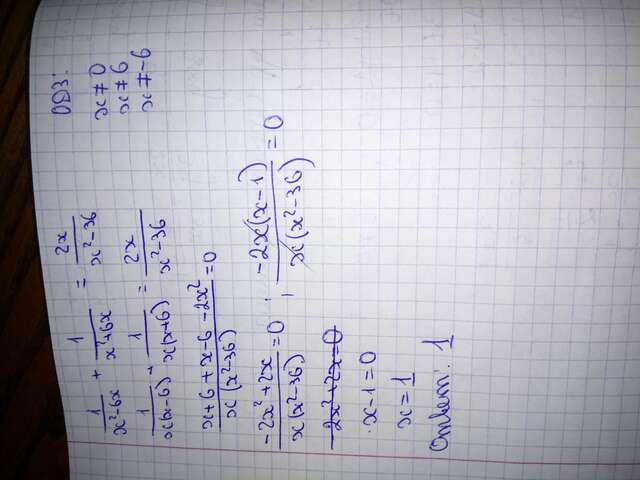 1/(x²-6x) + 1/(x²+6x) = 2x/(x²-36)
ОДЗ:
x≠0
x≠6
x≠-6
1/(x(x-6)) + 1/(x(x+6)) = 2x/(x²-36)
(x+6+x-6-2x²)/(x(x²-36)) = 0
(-2x²+2x)/(x(x²-36)) = 0 ; (-2x(x-1))/(x(x²-36)) = 0
-2x²+2x=0
x-1=0
x=1
Ответ: 1